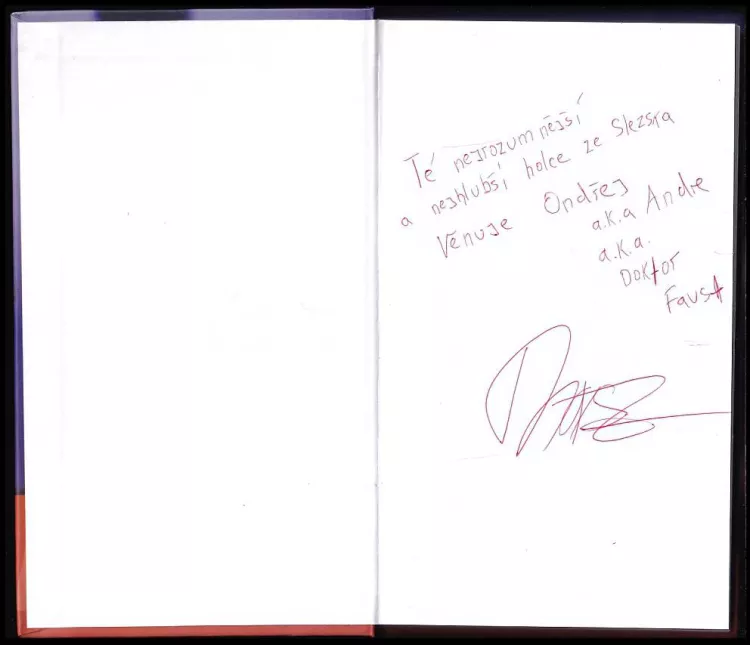 Té nejrozumnější
a nejhlubší holce ze Slezska
Věnuje Ondřej
a.k.a Andre
a.k.a.
Doktor
Faust